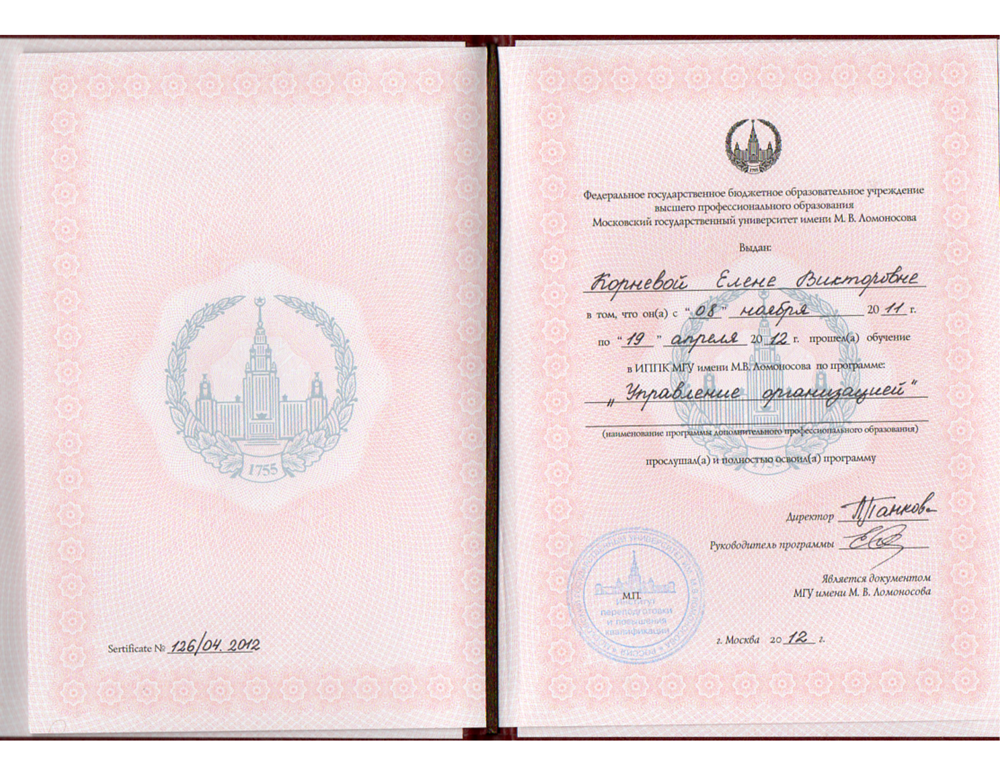 1755
Sertificate № 126/04 2012
1755
Федеральное государственное бюджетное образовательное учреждение
высшего профессионального образования
Московский государственный университет имени М. В. Ломоносова
Выдан:
Корневой Елене Викторовне
в том, что он(а) с "08" ноября 2011 г.
по "19" апреля 2012 г. прошел(а) обучение
в ИППК МГУ имени М.В. Ломоносова по программе:
„Управление организацией"
(наименование программы дополнительного профессионального образования)
прослушал(а) и полностью освоил(а) программу
1755
Директор
Руководитель программы
Является документом
МГУ имени М. В. Ломоносова
М.П.
Институт
переподготовки
и повышения
квалификации
г. Москва 2012 г.